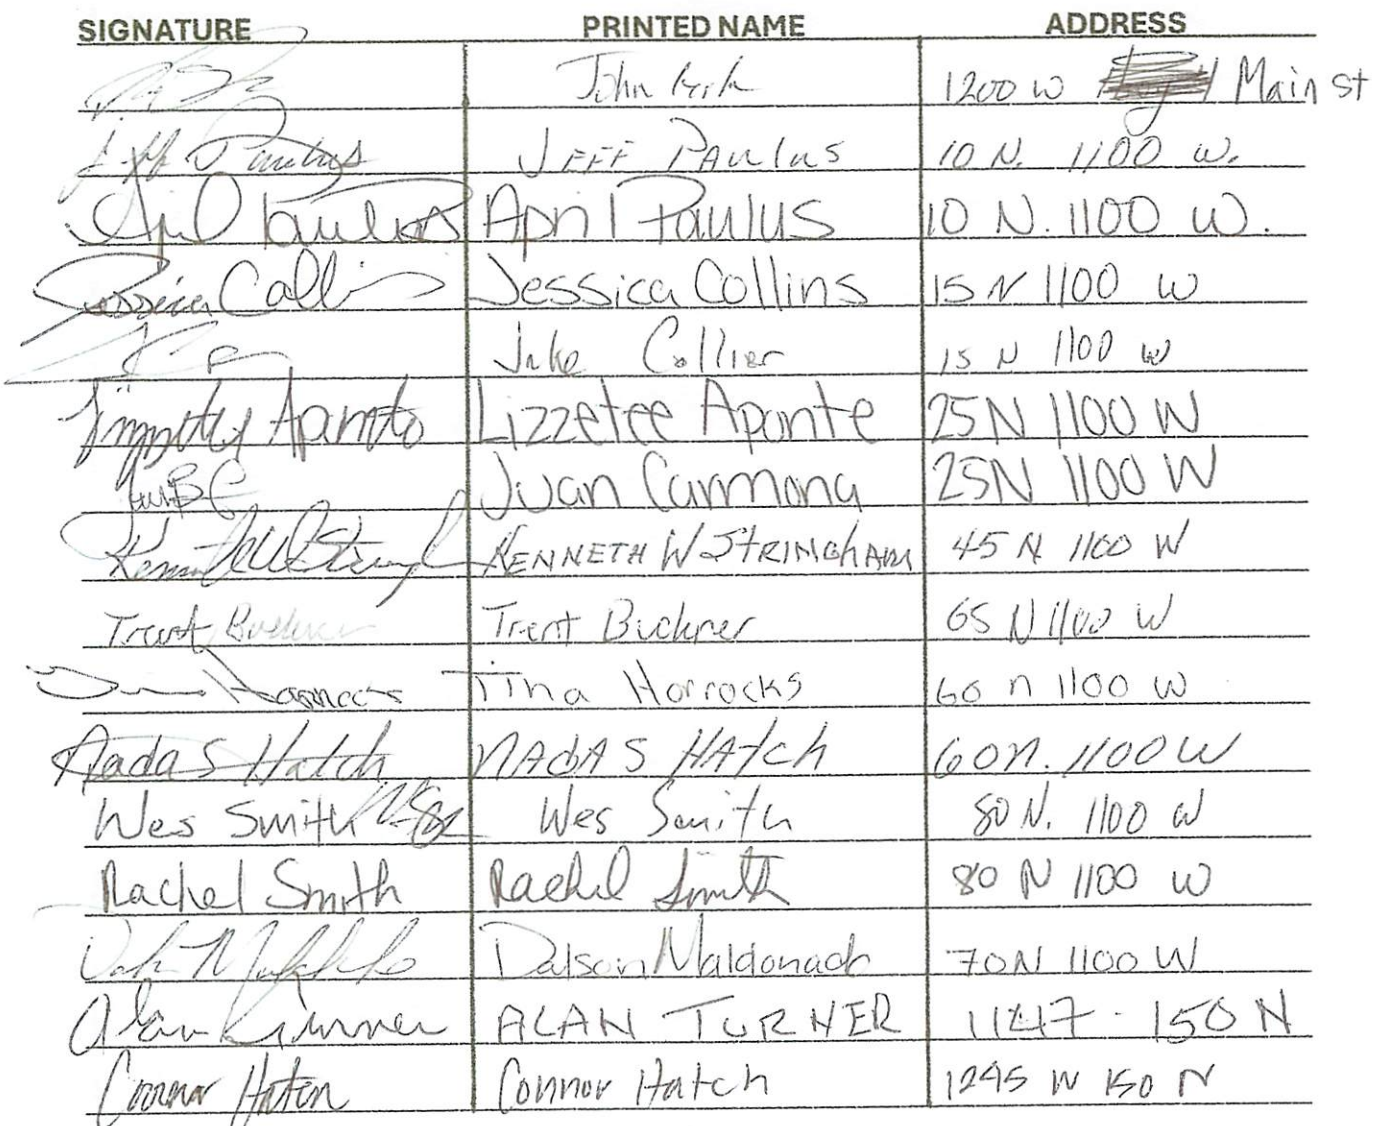 SIGNATURE PRINTED NAME ADDRESS
John Kirk 1200 W Main St
Jeff Paulus JEFF PAulus 10 N. 1100 W.
April Paulus April Paulus 10 N. 1100 W.
Jessica Collins Jessica Collins 15 N 1100 W
Jake Collier 15 N 1100 W
Aponte Lizzetee Aponte 25N 1100 W
Juan Carmona 25N 1100 W
Kenneth W Stringham KENNETH W STRINGhAM 45 N 1100 W
Trent Buckner Trent Buckner 65 N 1100 W
Tina Horrocks Tina Horrocks 60 n 1100 W
Nada S Hatch NAdA S HAtch 60 n. 1100 W
Wes Smith Wes Smith 80 N. 1100 W
Rachel Smith Rachel Smith 80 N 1100 W
Dalson Maldonado 70N 1100 W
Alan Turner ALAN TURNER 1147 - 150 N
Connor Hatch Connor Hatch 1295 W 150 N